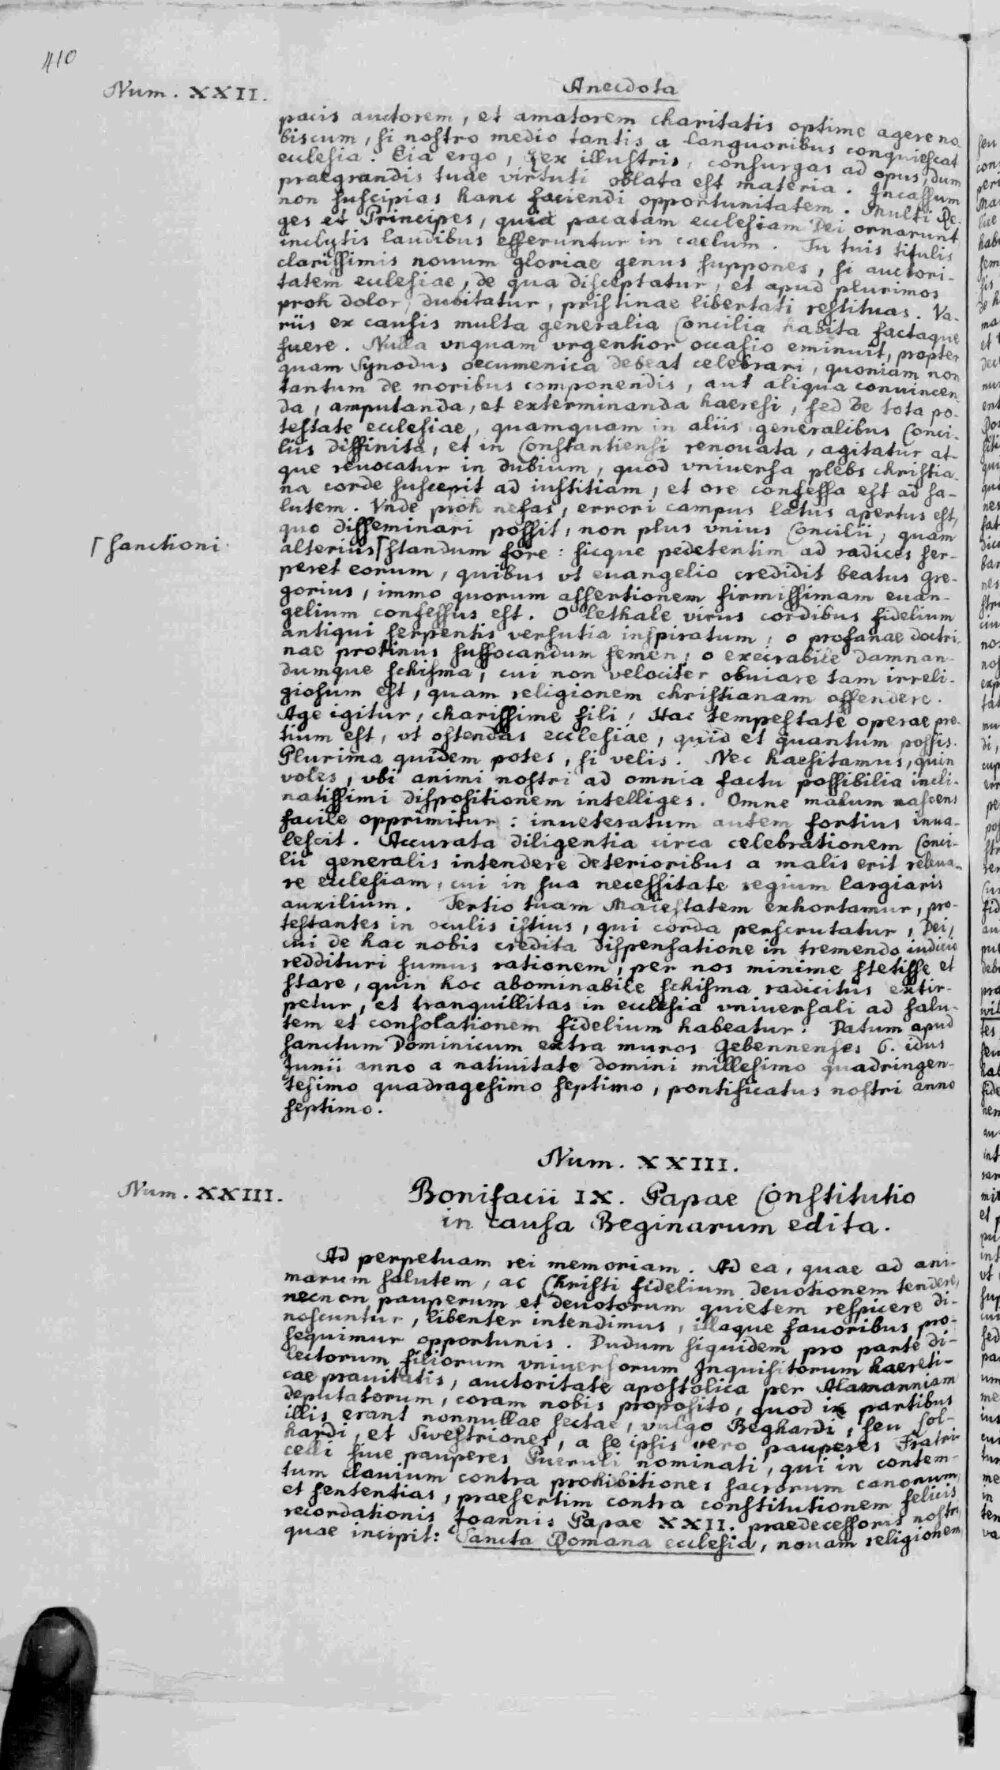 410
Num. XXII.
Anecdota
pacis auctorem, et amatorem charitatis optime agere no-
biscum, si nostro medio tantis a languoribus conquiescat
ecclesia. Eia ergo, rex illustris, consurgas ad opus, dum
praegrandis tuae virtuti oblata est materia. Incassum
non suscipias hanc faciendi opportunitatem. Multi Re-
ges et Principes, quia pacatam ecclesiam Dei ornarunt,
inclytis laudibus efferuntur in caelum. Tu tuis titulis
clarissimis nouum gloriae genus suppones, si auctori-
tatem ecclesiae, de qua disceptatur, et apud plurimos
proh dolor, dubitatur, pristinae libertati restituas. Va-
riis ex causis multa generalia Concilia habita factaque
fuere. Nulla vnquam vrgentior occasio eminuit, propter
quam Synodus oecumenica debeat celebrari, quoniam non
tantum de moribus componendis, aut aliqua conuincen-
da, amputanda, et exterminanda haeresi, sed de tota po-
testate ecclesiae, quamquam in aliis generalibus Conci-
liis diffinita, et in Constantiensi renouata, agitatur at-
que reuocatur in dubium, quod vniuersa plebs christia-
na corde suscepit ad iustitiam, et ore confessa est ad sa-
lutem. Vnde proh nefas, errori campus latus apertus est,
quo disseminari possit, non plus vnius Concilii, quam
alterius ⌈ standum fore: sicque pedetentim ad radices ser-
⌈ sanctioni
peret eorum, quibus vt euangelio credidit beatus Gre-
gorius, immo quorum assertionem firmissimam euan-
gelium confessus est. O lethale virus cordibus fidelium
antiqui serpentis versutia inspiratum, o profanae doctri-
nae protinus suffocandum semen, o execrabile damnan-
dumque schisma, cui non velociter obuiare tam irreli-
giosum est, quam religionem christianam offendere.
Age igitur, charissime fili, Hac tempestate operae pre-
tium est, vt ostendas ecclesiae, quid et quantum possis.
Plurima quidem potes, si velis. Nec haesitamus, quin
voles, vbi animi nostri ad omnia factu possibilia incli-
natissimi dispositionem intelliges. Omne malum nascens
facile opprimitur: inueteratum autem fortius inua-
lescit. Accurata diligentia circa celebrationem Conci-
lii generalis intendere deterioribus a malis erit releua-
re ecclesiam, cui in sua necessitate regium largiaris
auxilium. Tertio tuam Maiestatem exhortamur, pro-
testantes in oculis istius, qui corda perscrutatur, Dei,
cui de hac nobis credita dispensatione in tremendo iudicio
reddituri sumus rationem, per nos minime stetisse et
stare, quin hoc abominabile schisma radicitus extir-
petur, et tranquillitas in ecclesia vniuersali ad salu-
tem et consolationem fidelium habeatur. Datum apud
sanctum Dominicum extra muros Gebennenses 6. idus
Junii anno a natiuitate domini millesimo quadringen-
tesimo quadragesimo septimo, pontificatus nostri anno
septimo.
Num. XXIII.
Num. XXIII.
Bonifacii IX. Papae Constitutio
in causa Beginarum edita.
Ad perpetuam rei memoriam. Ad ea, quae ad ani-
marum salutem, ac Christi fidelium deuotionem tendere,
necnon pauperum et deuotorum quietem respicere di-
noscuntur, libenter intendimus, illaque fauoribus pro-
sequimur opportunis. Dudum siquidem pro parte di-
lectorum filiorum vniuersorum Inquisitorum haereti-
cae prauitatis, auctoritate apostolica per Alamanniam
deputatorum, coram nobis proposito, quod in partibus
illis erant nonnullae sectae, vulgo Beghardi, seu Lol-
hardi, et Swestriones, a se ipsis vero pauperes Fratri-
celli siue pauperes Pueruli nominati, qui in contem-
tum clauium contra prohibitiones sacrorum canonum,
et sententias, praesertim contra constitutionem felicis
recordationis Joannis Papae XXII. praedecessoris nostri,
quae incipit: Sancta Romana ecclesia, nouam religionem